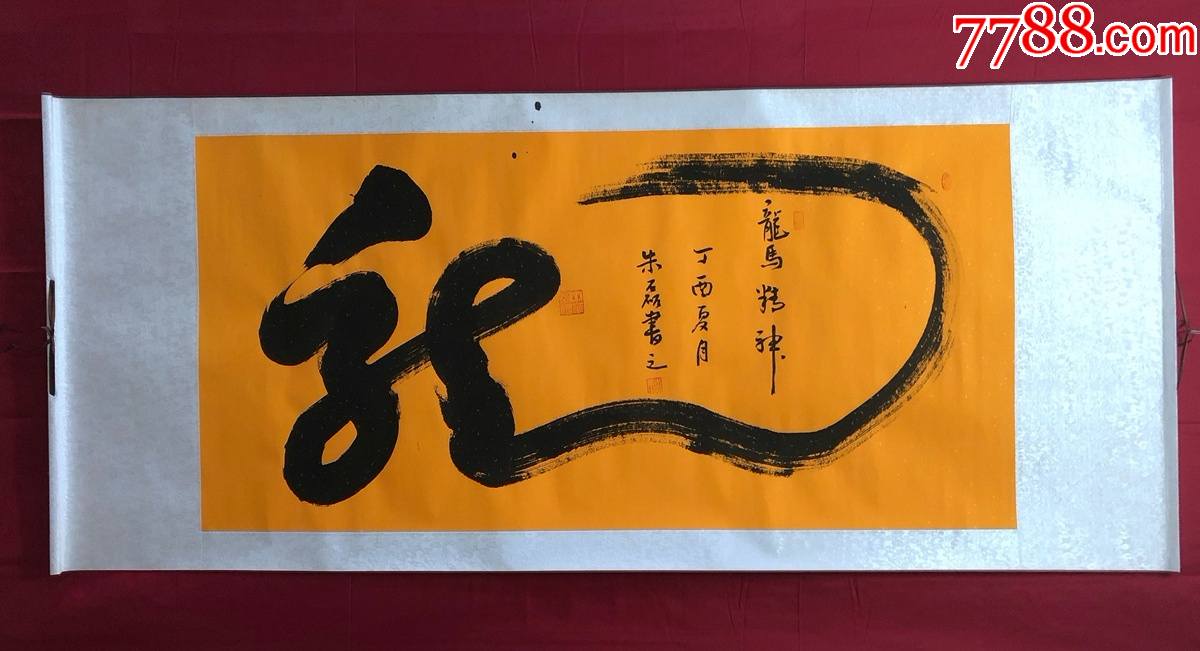 7788.com
龍
龍馬精神
丁酉夏月
朱磊書之